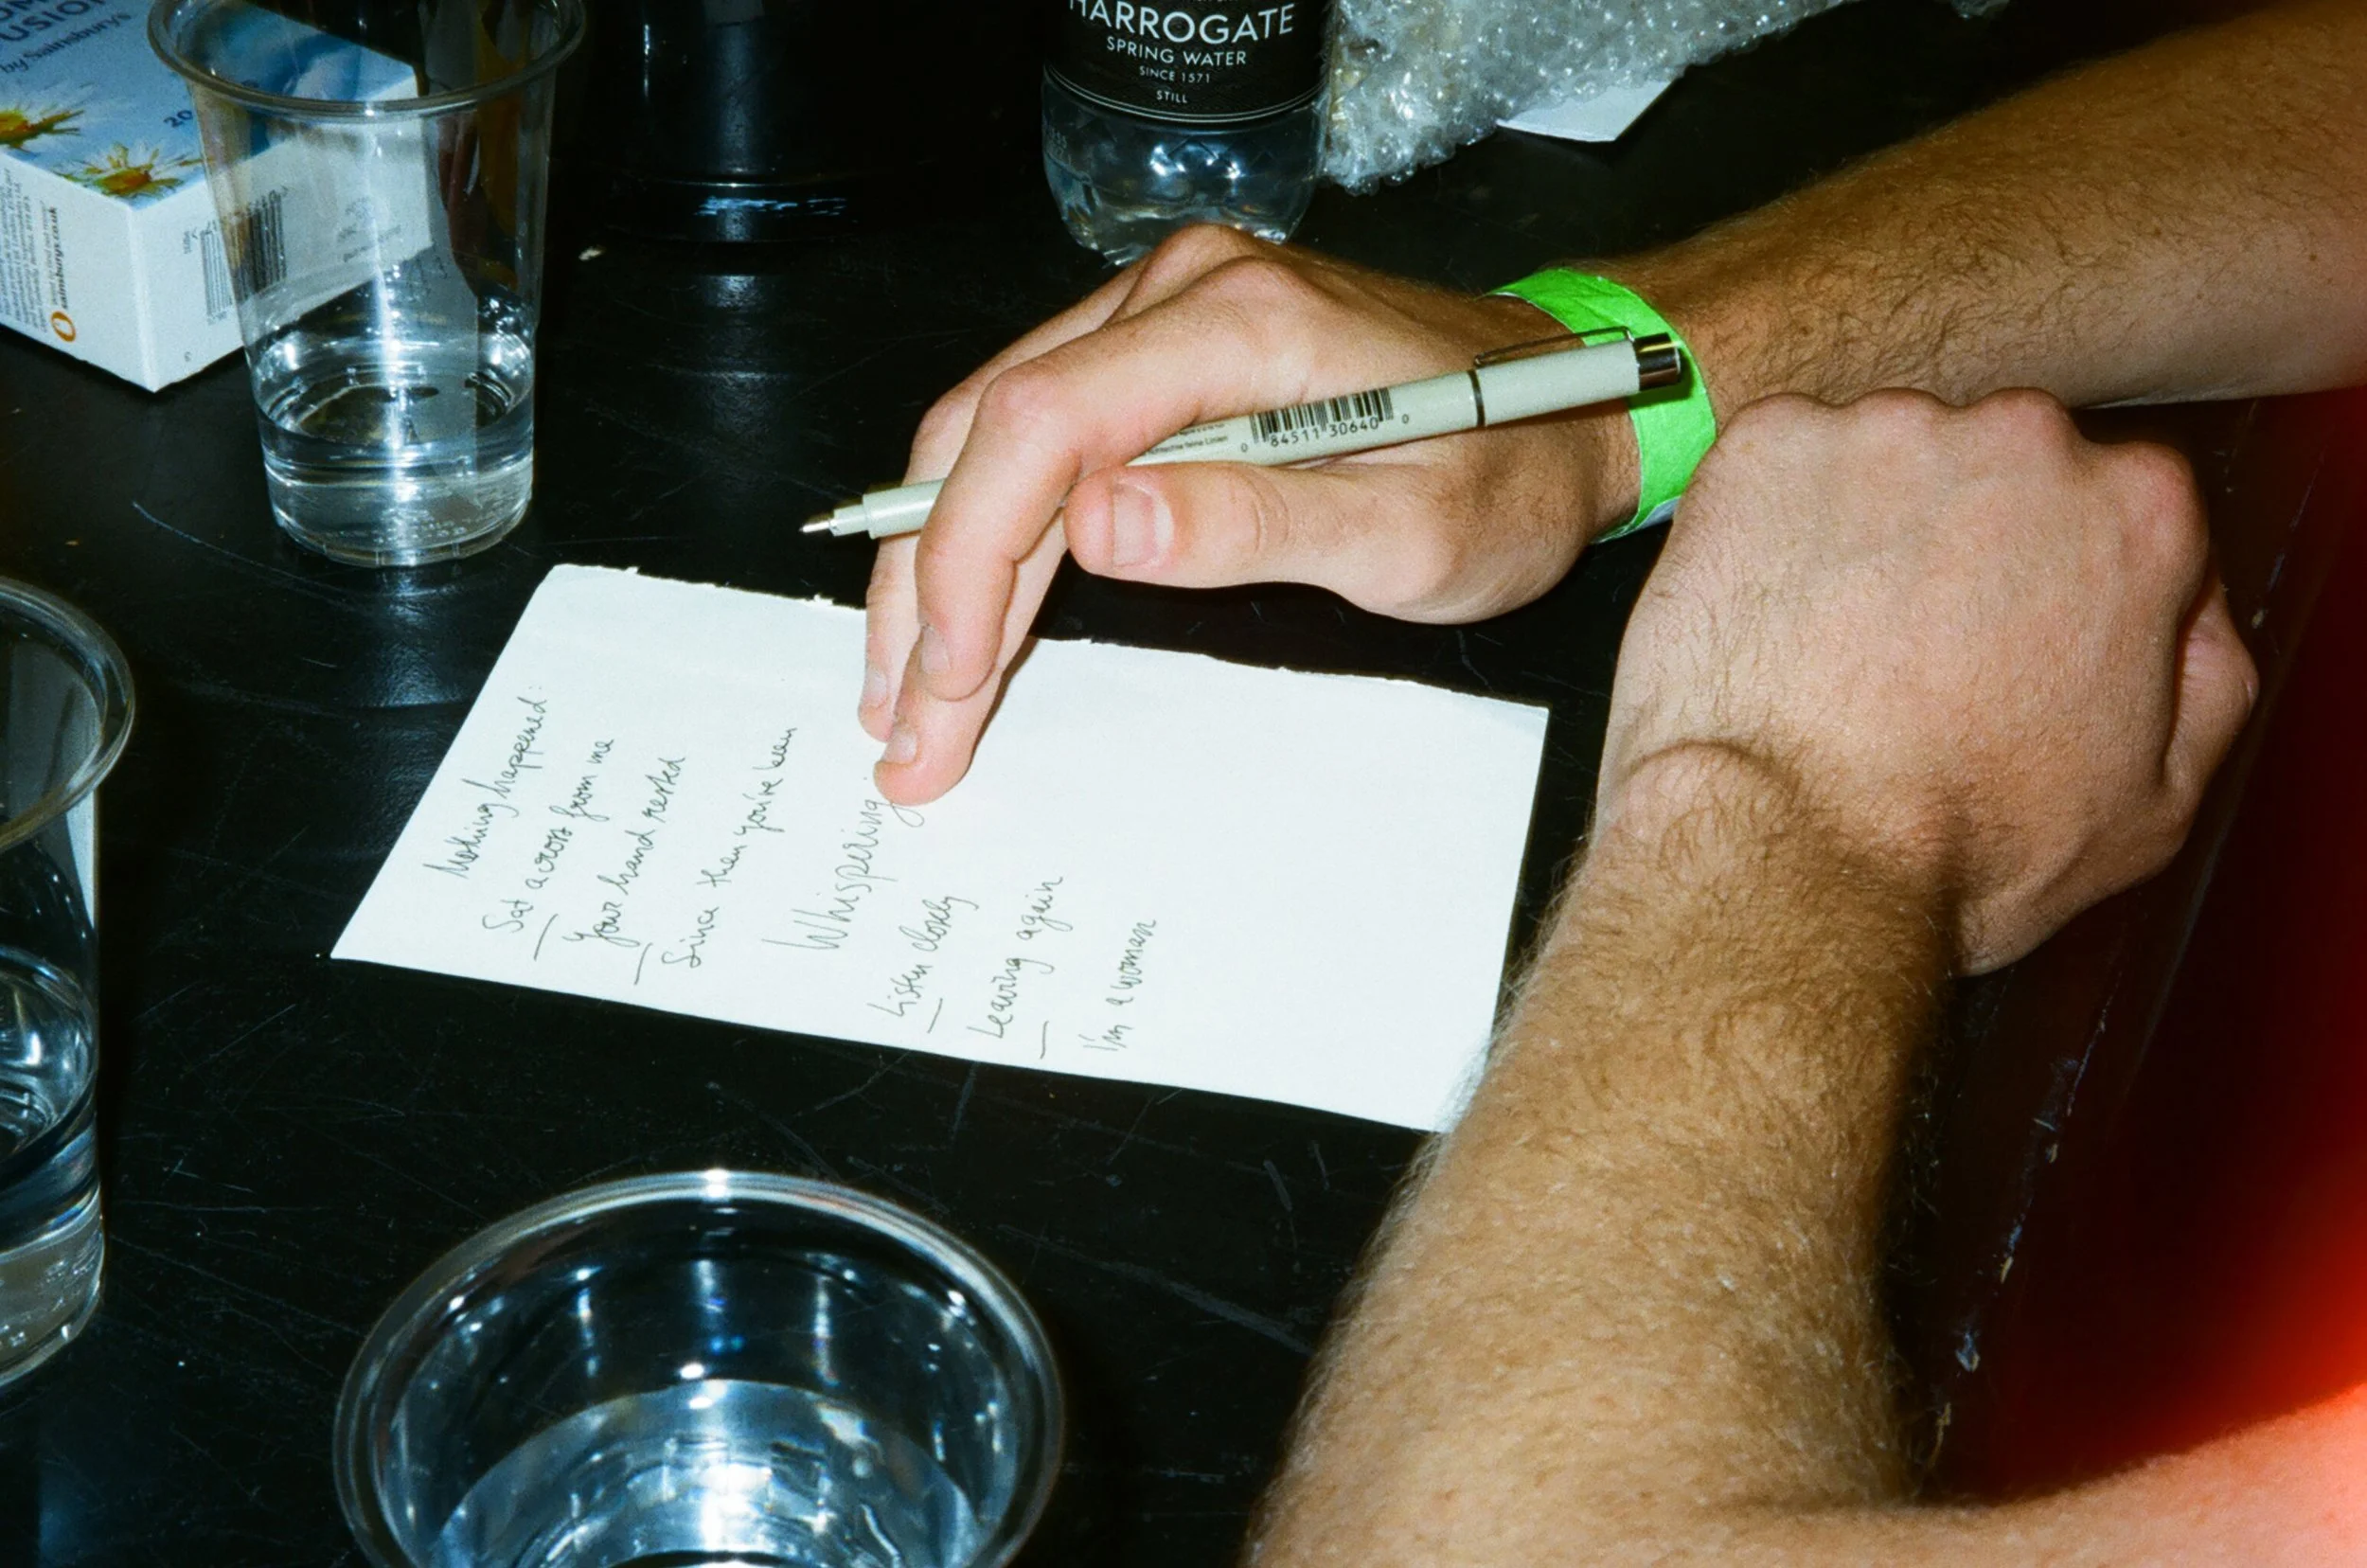 by Sainsbury's
20
sainsburys.co.uk
HARROGATE
SPRING WATER
SINCE 1571
STILL
0 84511 30640 0
Nothing happened:
Sat across from me
Your hand rested
Since then you've been
Whispering
Listen closely
Leaving again
I'm a woman